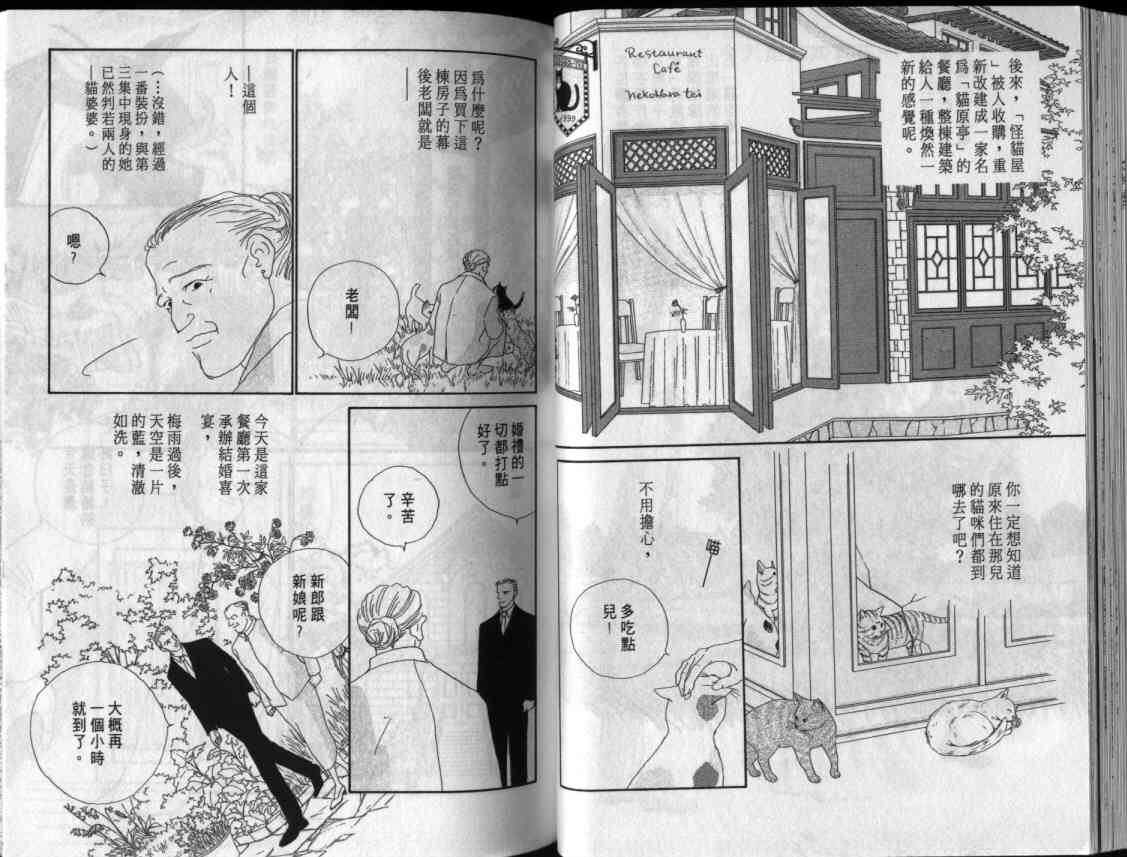 後來，「怪貓屋
」被人收購，重
新改建成一家名
爲「貓原亭」的
餐廳，整棟建築
給人一種煥然一
新的感覺呢。
Restaurant
Café
nekohara tei
1999
你一定想知道
原來住在那兒
的貓咪們都到
哪去了吧？
不用擔心，
喵
多吃點
兒！
爲什麼呢？
因爲買下這
棟房子的幕
後老闆就是
──
老闆！
──這個
人！
（…沒錯，經過
一番裝扮，與第
三集中現身的她
已然判若兩人的
──貓婆婆。）
嗯？
婚禮的一
切都打點
好了。
辛苦
了。
今天是這家
餐廳第一次
承辦結婚喜
宴，
梅雨過後，
天空是一片
的藍，清澈
如洗。
新郎跟
新娘呢？
大概再
一個小時
就到了。